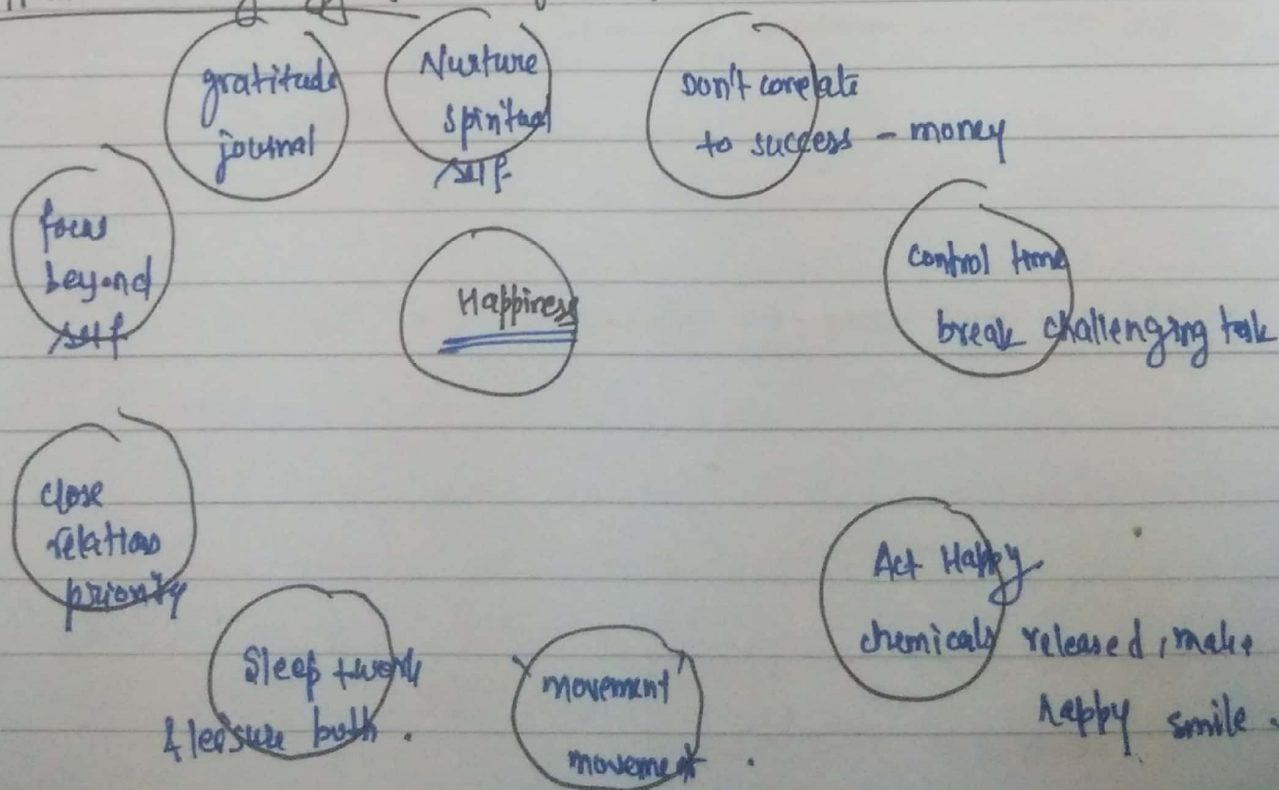 gratitude
journal
Nurture
spiritual
self
Don't correlate
to success - money
focus
beyond
self
Happiness
control time
break challenging task
close
relations
priority
Act Happy
chemicals released, make
happy smile.
Sleep + work
& leisure both.
movement
movement.